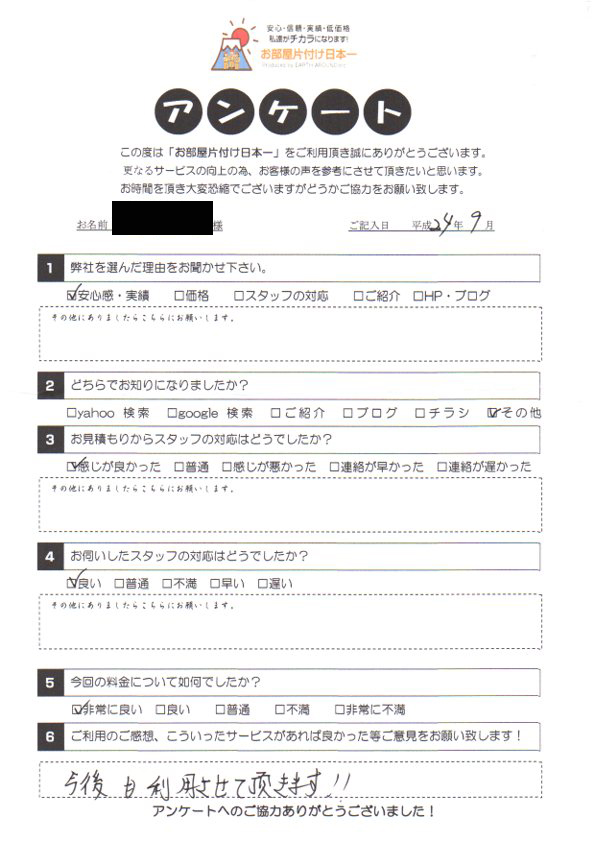 安心・信頼・実績・低価格
私達がチカラになります!
お部屋片付け日本一
Produced by EARTH AROUND inc.
アンケート
この度は「お部屋片付け日本一」をご利用頂き誠にありがとうございます。
更なるサービスの向上の為、お客様の声を参考にさせて頂きたいと思います。
お時間を頂き大変恐縮でございますがどうかご協力をお願い致します。
お名前 様 ご記入日 平成24年9月
1 弊社を選んだ理由をお聞かせ下さい。
☑安心感・実績 □価格 □スタッフの対応 □ご紹介 □HP・ブログ
その他にありましたらこちらにお願いします。
2 どちらでお知りになりましたか?
□yahoo 検索 □google 検索 □ご紹介 □ブログ □チラシ ☑その他
3 お見積もりからスタッフの対応はどうでしたか?
☑感じが良かった □普通 □感じが悪かった □連絡が早かった □連絡が遅かった
その他にありましたらこちらにお願いします。
4 お伺いしたスタッフの対応はどうでしたか?
☑良い □普通 □不満 □早い □遅い
その他にありましたらこちらにお願いします。
5 今回の料金について如何でしたか?
☑非常に良い □良い □普通 □不満 □非常に不満
6 ご利用のご感想、こういったサービスがあれば良かった等ご意見をお願い致します!
今後も利用させて頂きます!!
アンケートへのご協力ありがとうございました!